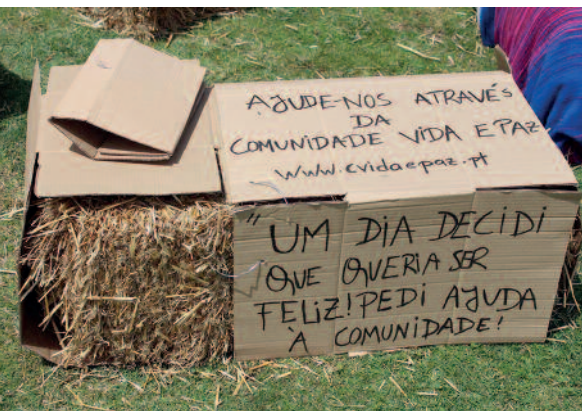 AJUDE-NOS ATRAVÉS
DA
COMUNIDADE VIDA E PAZ
www.cvidaepaz.pt
"UM DIA DECIDI
QUE QUERIA SER
FELIZ! PEDI AJUDA
À COMUNIDADE!